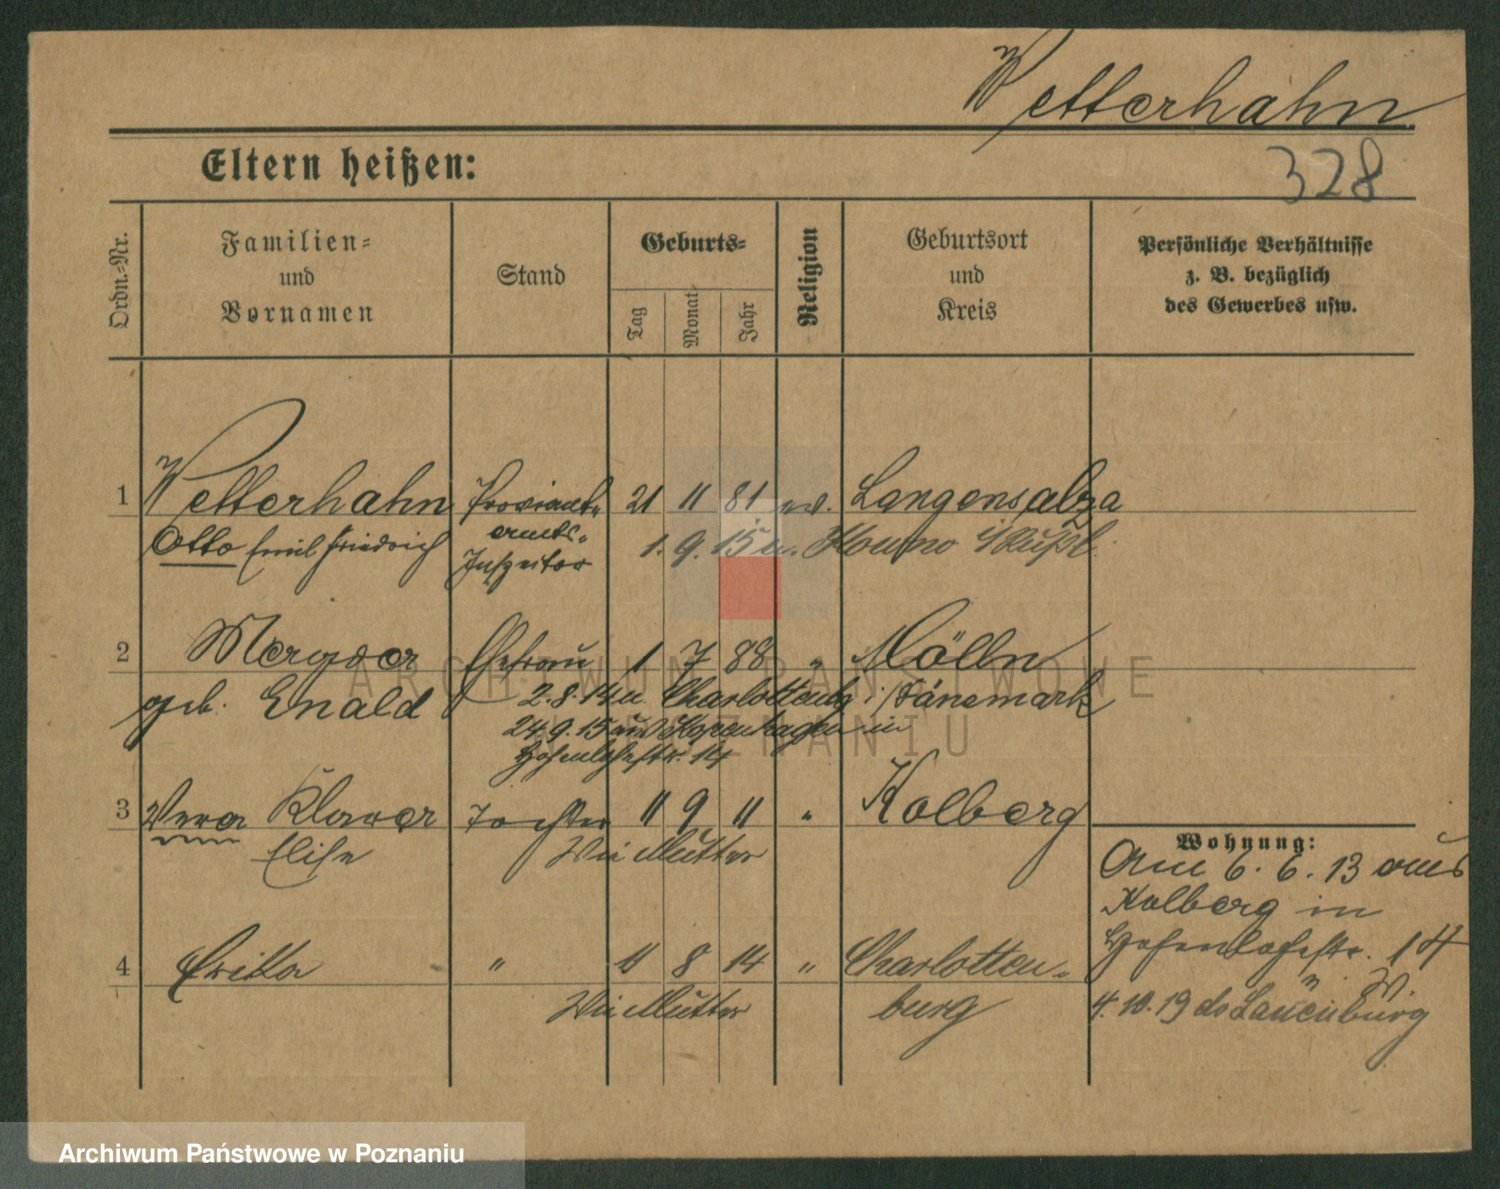 Wetterhahn
328
Eltern heißen:
Ordn.=Nr.
Familien=
und
Vornamen
Stand
Geburts=
Tag
Monat
Jahr
Religion
Geburtsort
und
Kreis
Persönliche Verhältnisse
z. B. bezüglich
des Gewerbes usw.
1 Wetterhahn Proviant= 21 11 81 ev. Langensalza
Otto Emil Friedrich amts= 1. 9. 15 n. Kowno i/Rußl.
Inspektor
2 Ehefrau 1 7 88 " Mölln
geb. Enald 2. 8. 14 n Charlottenbg i/Dänemark
24.9.15 Kopenhagen in
Hohenlohestr. 14
3 Vera Klara Tochter 11 9 11 " Kolberg
Elise Wie Mutter
Wohnung:
Am 6. 6. 13 aus
Kolberg in
Hohenlohestr. 14
4 Erika " 11 8 14 " Charlotten=
Wie Mutter burg
4. 10. 19
ARCHIWUM PAŃSTWOWE
W POZNANIU
Archiwum Państwowe w Poznaniu